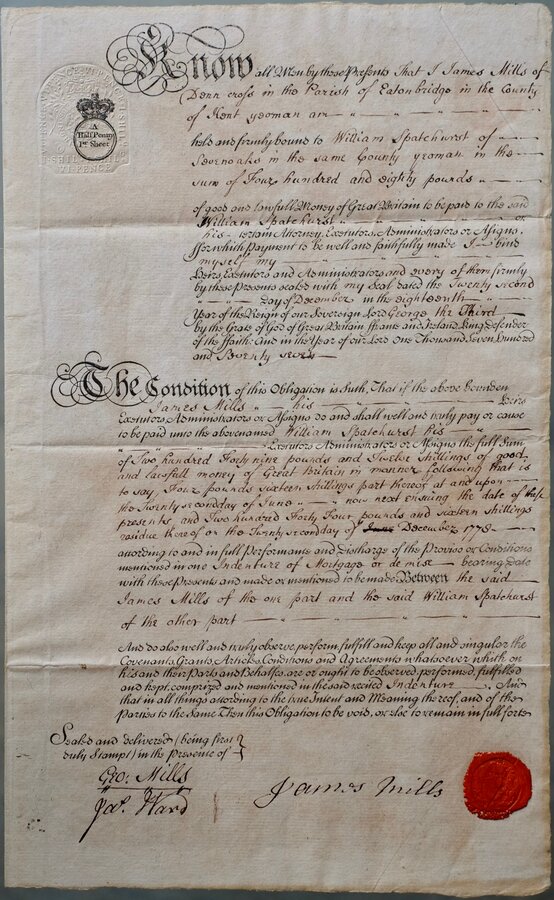 Know all Men by these Presents That I James Mills of
Denn cross in the Parish of Eatonbridge in the County
of Kent yeoman am
A
Half Penny
Pr Sheet
held and firmly bound to William Spatchurst of
Sevenoaks in the same County yeoman in the
sum of Four hundred and eighty pounds
of good and lawfull Money of Great Britain to be paid to the said
William Spatchurst or
his certain Attorney, Executors, Administrators or Assigns,
for which Payment to be well and faithfully made I bind
myself my
Heirs, Executors and Administrators and every of them firmly
by these Presents sealed with my Seal dated the Twenty second
Day of December in the eighteenth
Year of the Reign of our Sovereign Lord George the Third
by the Grace of God of Great Britain France and Ireland King Defender
of the Faith And in the Year of our Lord One Thousand Seven Hundred
and Seventy seven
The Condition of this Obligation is Such, That if the above bounden
James Mills his Heirs
Executors, Administrators or Assigns do and shall well and truly pay or cause
to be paid unto the abovenamed William Spatchurst his
Executors Administrators or Assigns the full Sum
of Two hundred Forty nine pounds and Twelve shillings of good
and lawfull money of Great Britain in manner following that is
to say, Four pounds sixteen shillings part thereof at and upon
the Twenty second day of June now next ensuing the date of these
presents and Two hundred Forty Four pounds and sixteen shillings
residue thereof on the Twenty second day of December 1778
according to and in full Performance and Discharge of the Proviso or Conditions
mentioned in one Indenture of Mortgage or demise bearing Date
with these Presents and made or mentioned to be made Between the said
James Mills of the one part and the said William Spatchurst
of the other part
And do also well and truly observe perform fulfill and keep all and singular the
Covenants, Grants, Articles, Conditions and Agreements whatsoever which on
his and their Parts and Behalfes, are or ought to be observed, performed, fulfilled
and kept, comprized and mentioned in the said recited Indenture And
that in all things according to the true Intent and Meaning thereof, and of the
Parties to the Same Then this Obligation to be void, or else to remain in full force
Sealed and delivered (being first
duly Stampt) in the Presence of
Geo: Mills
Jas. Ward
James Mills